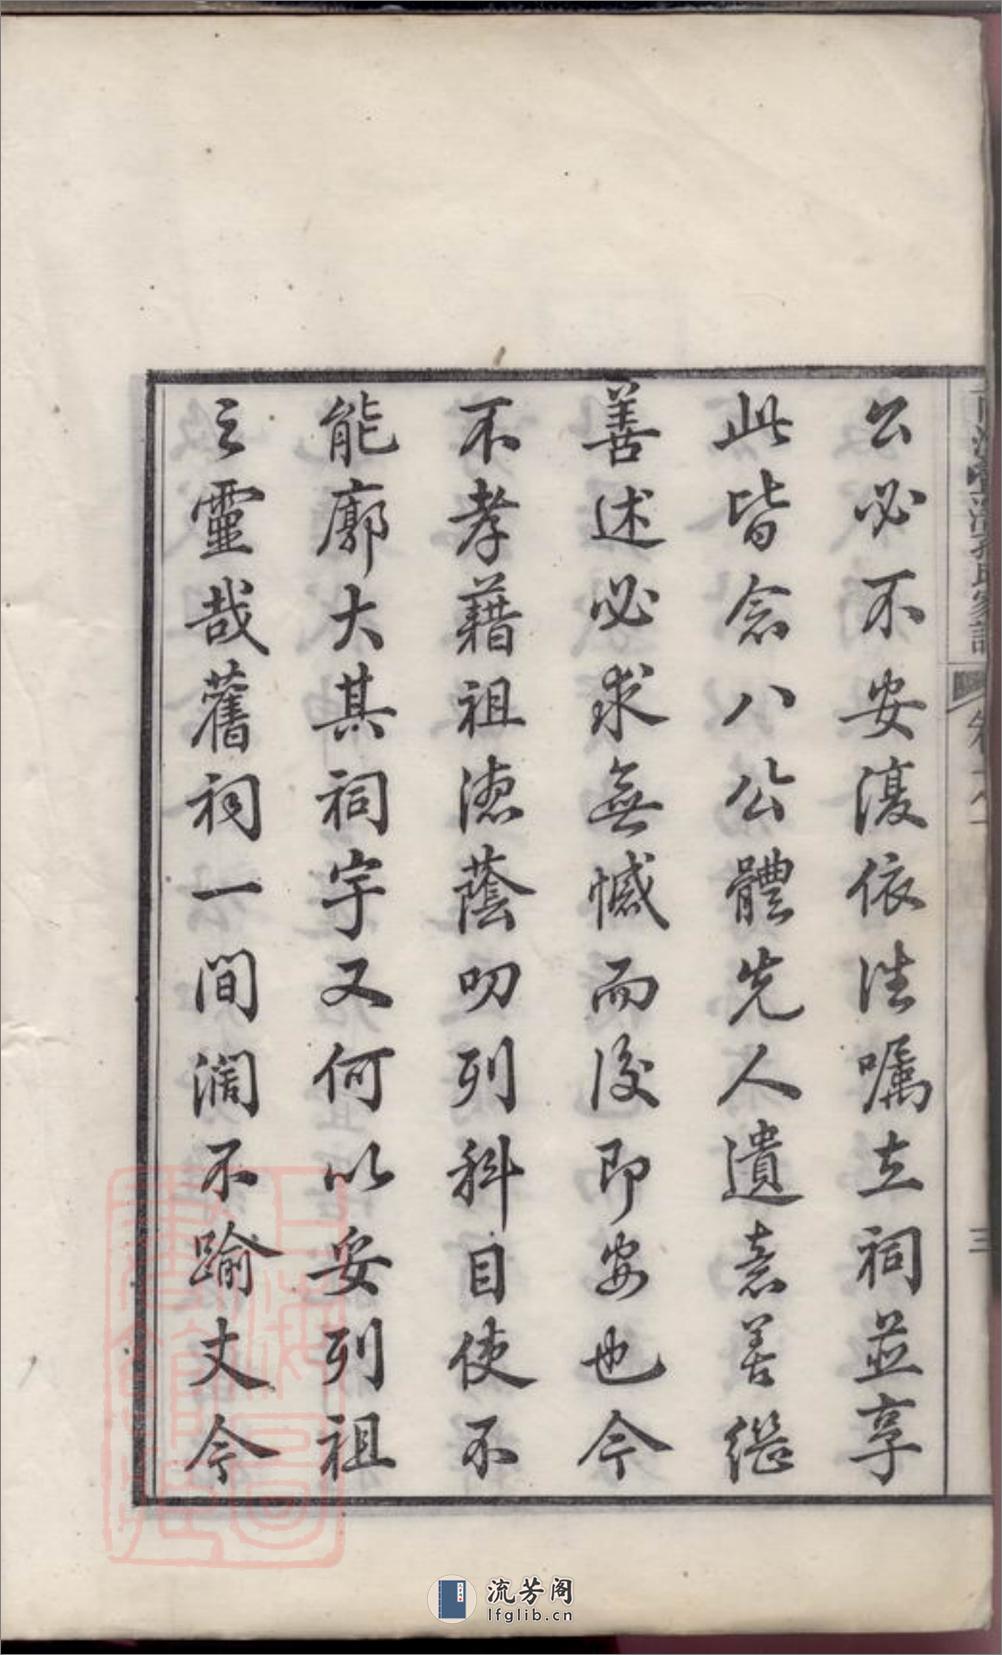 公必不安復依法囑立祠並享
此皆念八公體先人遺意善繼
善述必求無憾而後即安也今
不孝藉祖德蔭叨列科目使不
能廓大其祠宇又何以妥列祖
之靈哉舊祠一間濶不踰丈今
三
流芳阁
lfglib.cn